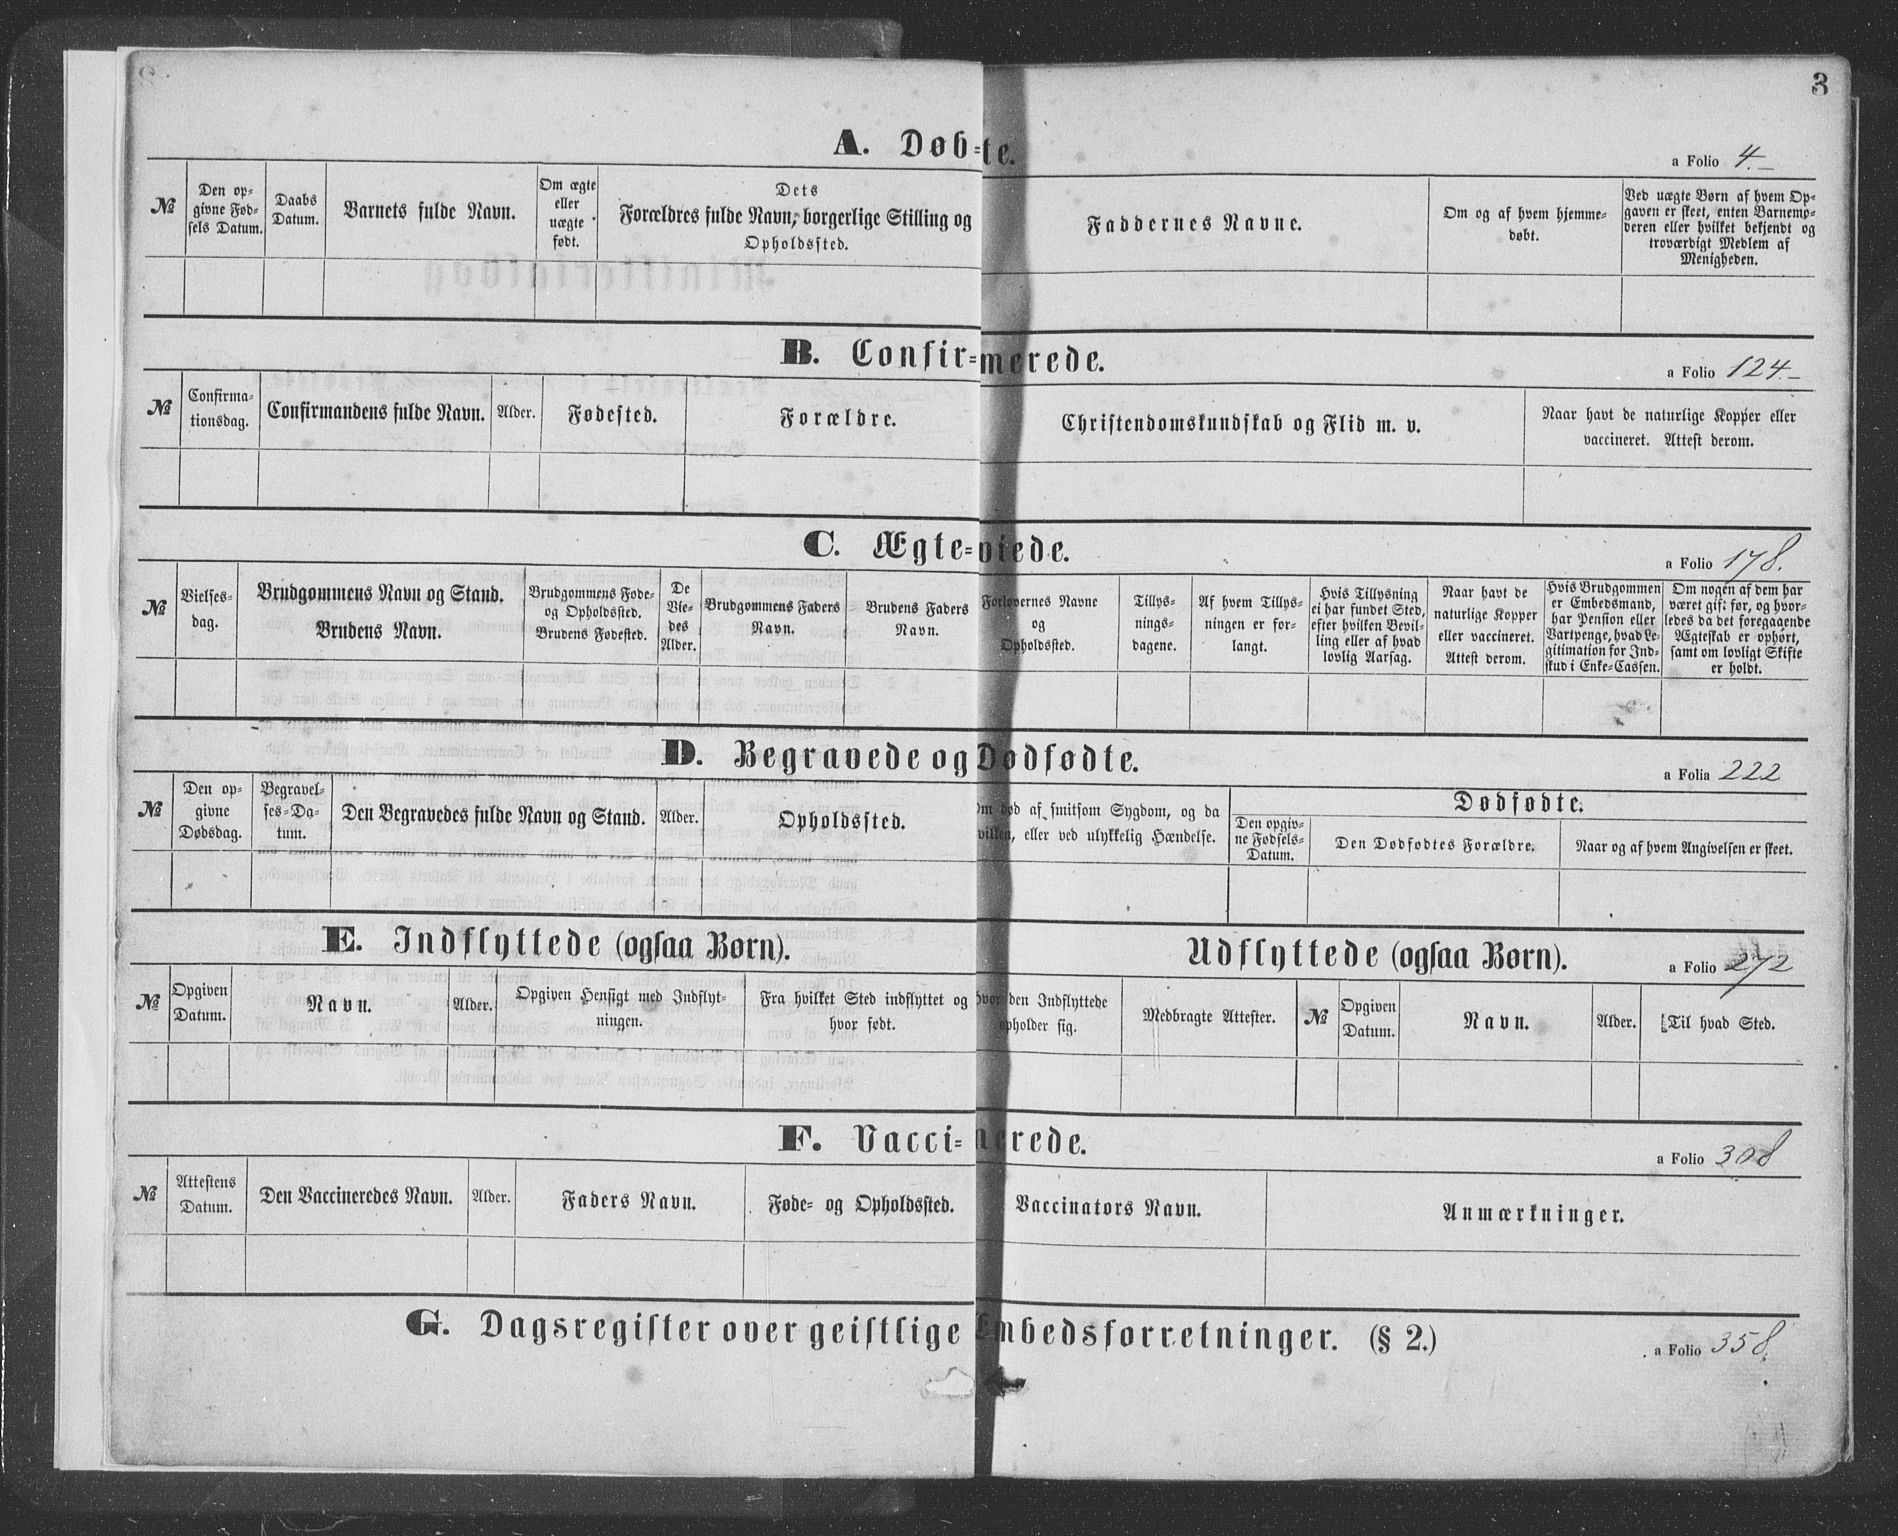 3
A. Døb=te.
a Folio 4.
№
Den op=
givne Fød=
sels Datum.
Daabs
Datum.
Barnets fulde Navn.
Om ægte
eller
uægte
født.
Dets
Forældres fulde Navn, borgerlige Stilling og
Opholdssted.
Faddernes Navne.
Om og af hvem hjemme=
døbt.
Ved uægte Børn af hvem Op=
gaven er skeet, enten Barnemp=
deren eller hvilket bekjendt og
troværdigt Medlem af
Menigheden.
B. Confir=merede.
a Folio 124.
№
Confirma=
tionsdag.
Confirmandens fulde Navn.
Alder.
Fødested.
Forældre.
Christendomskundskab og Flid m. v.
Naar havt de naturlige Kopper eller
vaccineret. Attest derom.
C. Ægte=viede.
a Folio 178.
№
Vielses=
dag.
Brudgommens Navn og Stand.
Brudens Navn.
Brudgommens Føde=
og Opholdssted.
Brudens Fødested.
De
Vie=
des
Alder.
Brudgommens Faders
Navn.
Brudens Faders
Navn.
Forlovernes Navne
og
Opholdssted.
Tillys=
nings=
dagene.
Af hvem Tillys=
ningen er for=
langt.
Hvis Tillysning
ei har fundet Sted,
efter hvilken Bevil=
ling eller af hvad
lovlig Aarsag.
Naar havt de
naturlige Kopper
eller vaccineret.
Attest derom.
Hvis Brudgommen
er Embedsmand,
har Pension eller
Vartpenge, hvad Le=
gitimation for Ind=
skud i Enke=Cassen.
Om nogen af dem har
været gift før, og hvor=
ledes da det foregaaende
Ægteskab er ophørt,
samt om lovligt Skifte
er holdt.
D. Begravede og Dødfødte.
a Folia 222
№
Den op=
givne
Dødsdag.
Begravel=
ses=Da=
tum.
Den Begravedes fulde Navn og Stand.
Alder.
Opholdssted.
Om død af smitsom Sygdom, og da
hvilken, eller ved ulykkelig Hændelse.
Dødfødte.
Den opgiv=
ne Fødsels=
Datum.
Den Dødfødtes Forældre.
Naar og af hvem Angivelsen er skeet.
E. Indflyttede (ogsaa Børn).
Udflyttede (ogsaa Børn).
a Folio 272
№
Opgiven
Datum.
Navn.
Alder.
Opgiven Hensigt med Indflyt=
ningen.
Fra hvilket Sted indflyttet og
hvor født.
Hvor den Indflyttede
opholder sig.
Medbragte Attester.
№
Opgiven
Datum.
Navn.
Alder.
Til hvad Sted.
F. Vacci=nerede.
a Folio 308
№
Attestens
Datum.
Den Vaccineredes Navn.
Alder.
Faders Navn.
Føde= og Opholdssted.
Vaccinators Navn.
Anmærkninger.
G. Dagsregister over geistlige Embedsforretninger. (§ 2.)
a Folio 358.